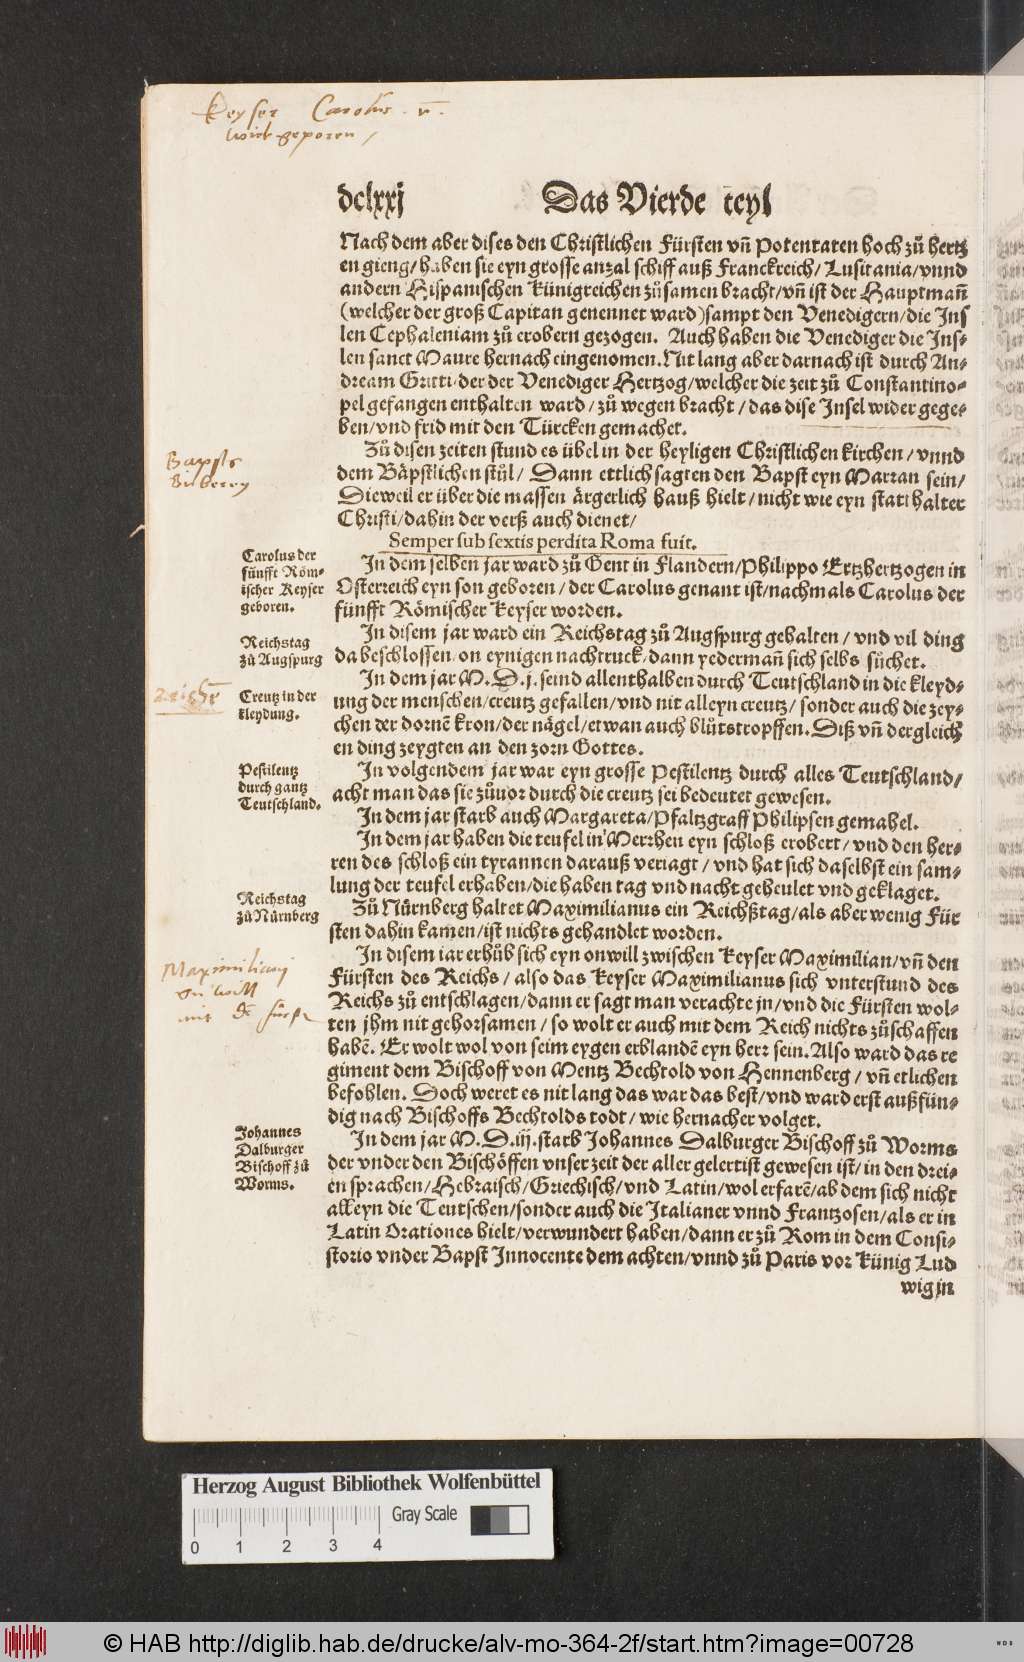 Keyser Carolus . v.
wirt geporen /
dclxxj Das Vierde teyl
Nach dem aber dises den Christlichen Fürsten vñ Potentaten hoch zů hertz
en gieng/haben sie eyn grosse anzal schiff auß Franckreich/Lusitania/vnnd
andern Hispanischen künigreichen zůsamen bracht/vñ ist der Hauptmañ
(welcher der groß Capitan genennet ward)sampt den Venedigern/die Ins
len Cephaleniam zů erobern gezogen. Auch haben die Venediger die Jns-
len sanct Maure hernach eingenomen. Nit lang aber darnach ist durch An-
dream Gritti/der der Venediger Hertzog/welcher die zeit zů Constantino-
pel gefangen enthalten ward/zů wegen bracht/das dise Insel wider gege-
ben/vnd frid mit den Türcken gemachet.
Zů disen zeiten stund es übel in der heyligen Christlichen kirchen/vnnd
dem Bäpstlichen stůl/ Dann ettlich sagten den Bapst eyn Marran sein/
Dieweil er über die massen ärgerlich hauß hielt/nicht wie eyn statthalter
Christi/dahin der verß auch dienet/
Semper sub sextis perdita Roma fuit.
Bapsts
Carolus der
fünfft Röm-
ischer Keyser
geboren.
In dem selben jar ward zů Gent in Flandern/Philippo Ertzhertzogen in
Osterreich eyn son geboren/der Carolus genant ist/nachmals Carolus der
fünfft Römischer keyser worden.
Reichstag
zů Augspurg
In disem jar ward ein Reichstag zů Augspurg gehalten/vnd vil ding
da beschlossen/on eynigen nachtruck/dann yederman̄ sich selbs sůchet.
Creutz in der
kleydung.
In dem jar M.D.j. seind allenthalben durch Teutschland in die kleyd-
ung der menschen/creutz gefallen/vnd nit alleyn creutz/sonder auch die zey-
chen der dornē kron/der nägel/etwan auch blůtstropffen. Diß vñ dergleich
en ding zeygten an den zorn Gottes.
Pestilentz
durch gantz
Teutschland.
In volgendem jar war eyn grosse Pestilentz durch alles Teutschland/
acht man das sie zůuor durch die creutz sei bedeutet gewesen.
In dem jar starb auch Margareta/Pfaltzgraff Philipsen gemahel.
In dem jar haben die teufel in Merrhen eyn schloß erobert/vnd den her-
ren des schloß ein tyrannen darauß veriagt/vnd hat sich daselbst ein sam-
lung der teufel erhaben/die haben tag vnd nacht geheulet vnd geklaget.
Reichstag
zů Nürnberg
Zů Nürnberg haltet Maximilianus ein Reichßtag/als aber wenig Für
sten dahin kamen/ist nichts gehandlet worden.
Maximiliani
vnwill
mit
In disem iar erhůb sich eyn onwill zwischen Keyser Maximilian/vñ den
Fürsten des Reichs/also das keyser Maximilianus sich vnterstund des
Reichs zů entschlagen/dann er sagt man verachte jn/vnd die Fürsten wol-
ten jhm nit gehorsamen/so wolt er auch mit dem Reich nichts zůschaffen
habē. Er wolt wol von seim eygen erblandē eyn herr sein. Also ward das re
giment dem Bischoff von Mentz Bechtold von Hennenberg/vñ etlichen
befohlen. Doch weret es nit lang das war das best/vnd ward erst außfün-
dig nach Bischoffs Bechtolds todt/wie hernacher volget.
Johannes
Dalburger
Bischoff zů
Worms.
In dem jar M.D.iij. starb Johannes Dalburger Bischoff zů Worms
der vnder den Bischöffen vnser zeit der aller gelertist gewesen ist/in den drei-
en sprachen/Hebraisch/Griechisch/vnd Latin/wol erfarē/ab dem sich nicht
alleyn die Teutschen/sonder auch die Italianer vnnd Frantzosen/als er in
Latin Orationes hielt/verwundert haben/dann er zů Rom in dem Consi-
storio vnder Bapst Innocente dem achten/vnnd zů Paris vor künig Lud
wig in
Herzog August Bibliothek Wolfenbüttel
Gray Scale
0 1 2 3 4
© HAB http://diglib.hab.de/drucke/alv-mo-364-2f/start.htm?image=00728